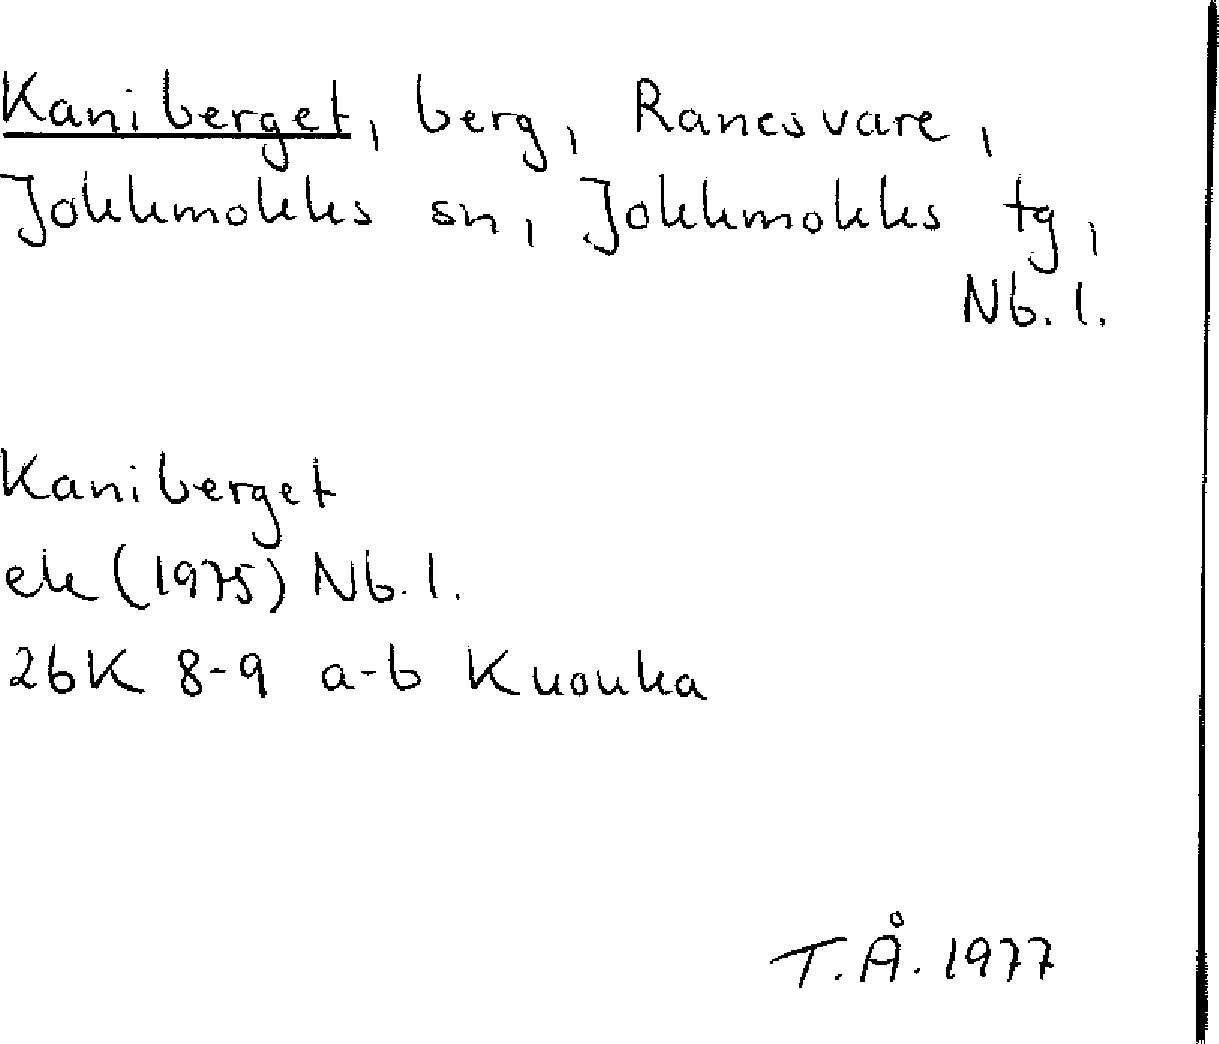 Kaniberget, berg, Ranesvare,
Jokkmokks sn, Jokkmokks tg,
Nb. l.
Kaniberget
ek (1975) Nb. l.
26K 8-9 a-b Kuouka
T.Å. 1977